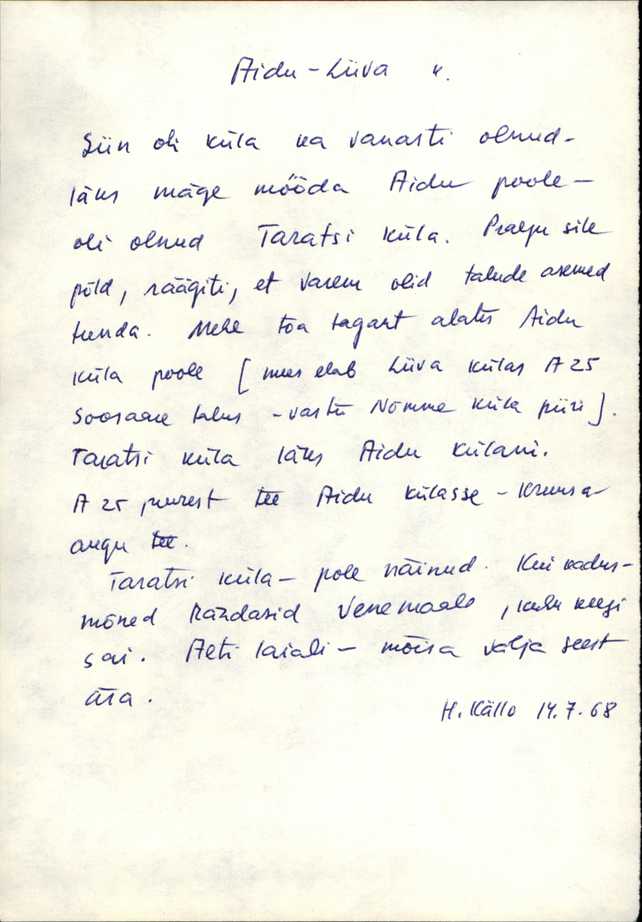 Aidu - Liiva k.
Siin oli küla ka vanasti olnud -
läks mäge mööda Aidu poole -
oli olnud Taratsi küla. Praegu sile
põld, räägiti, et varem olid talude asemed
tunda. Mehe toa tagant alates Aidu
küla poole [mees elab Liiva külas A 25
Soosaare talus - vastu Nõmme küla piiri].
Taratsi küla läks Aidu külani.
A 25 juurest tee Aidu külasse - kruusa-
augu tee.
Taratsi küla - pole näinud. Kui kadus -
mõned rändasid Venemaale, kuhu keegi
sai. Aeti laiali - mõisa välja seest
ära.
H. Källo 14.7.68